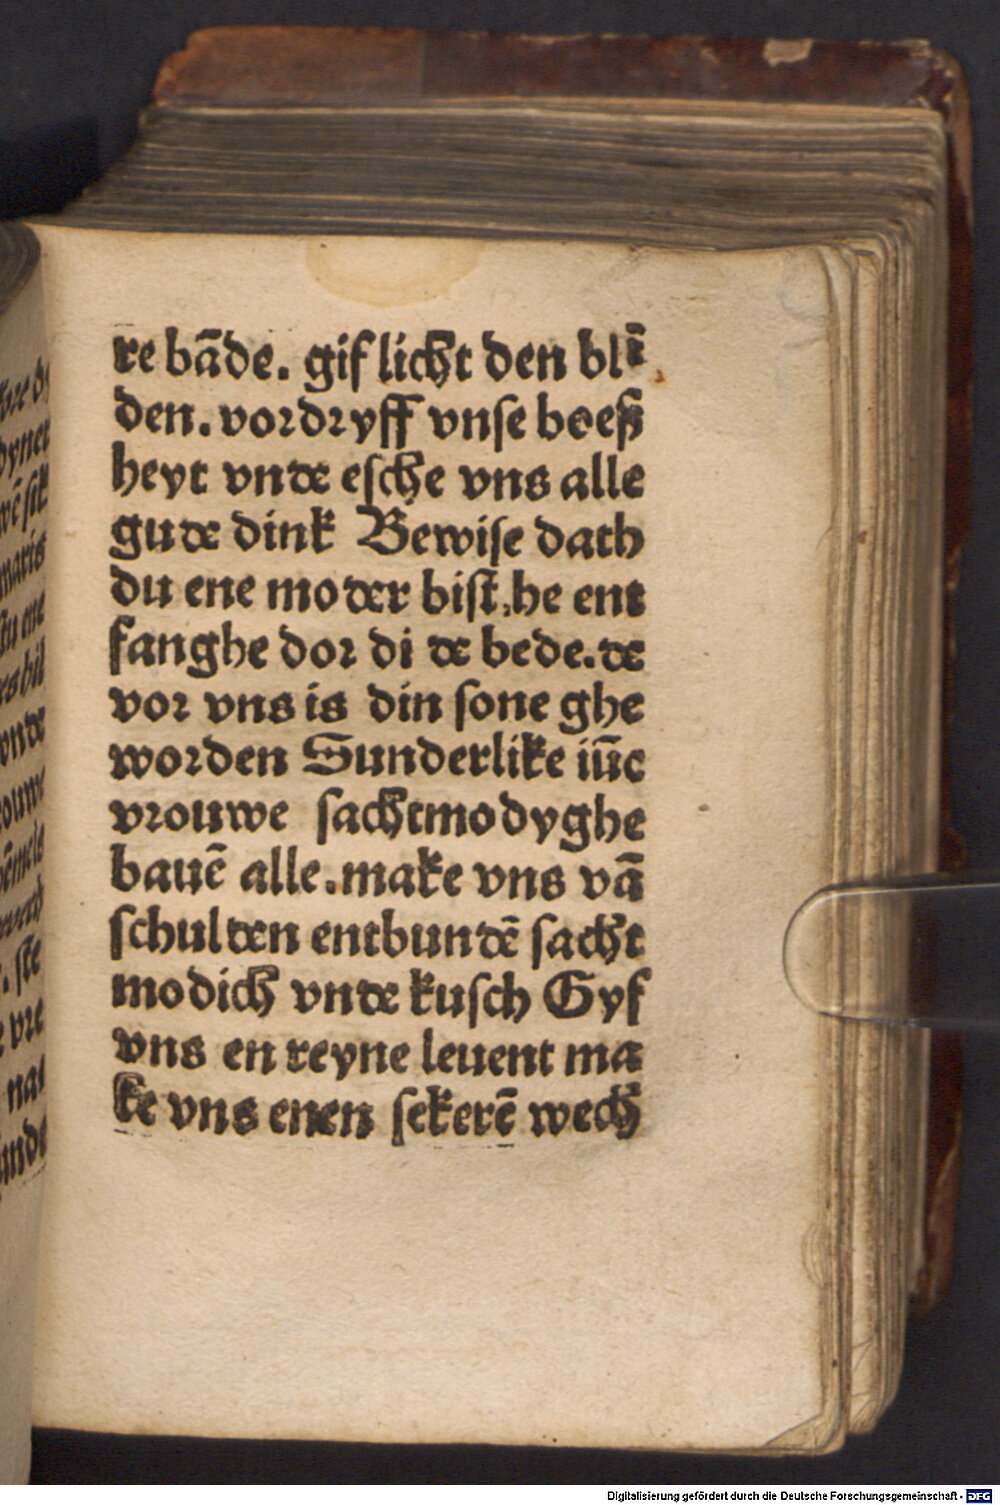 re bāde. gif licht den blī
den. vordryff vnse boeß
heyt vnde esche vns alle
gude dink Bewise dath
du ene moder bist, he ent
fanghe dor di de bede. de
vor vns is din sone ghe
worden Sunderlike iūc
vrouwe sachtmodyghe
bauē alle. make vns vā
schulden entbundē sacht
modich vnde kusch Gyf
vns en reyne leuent ma
ke vns enen sekerē wech
Digitalisierung gefördert durch die Deutsche Forschungsgemeinschaft - DFG